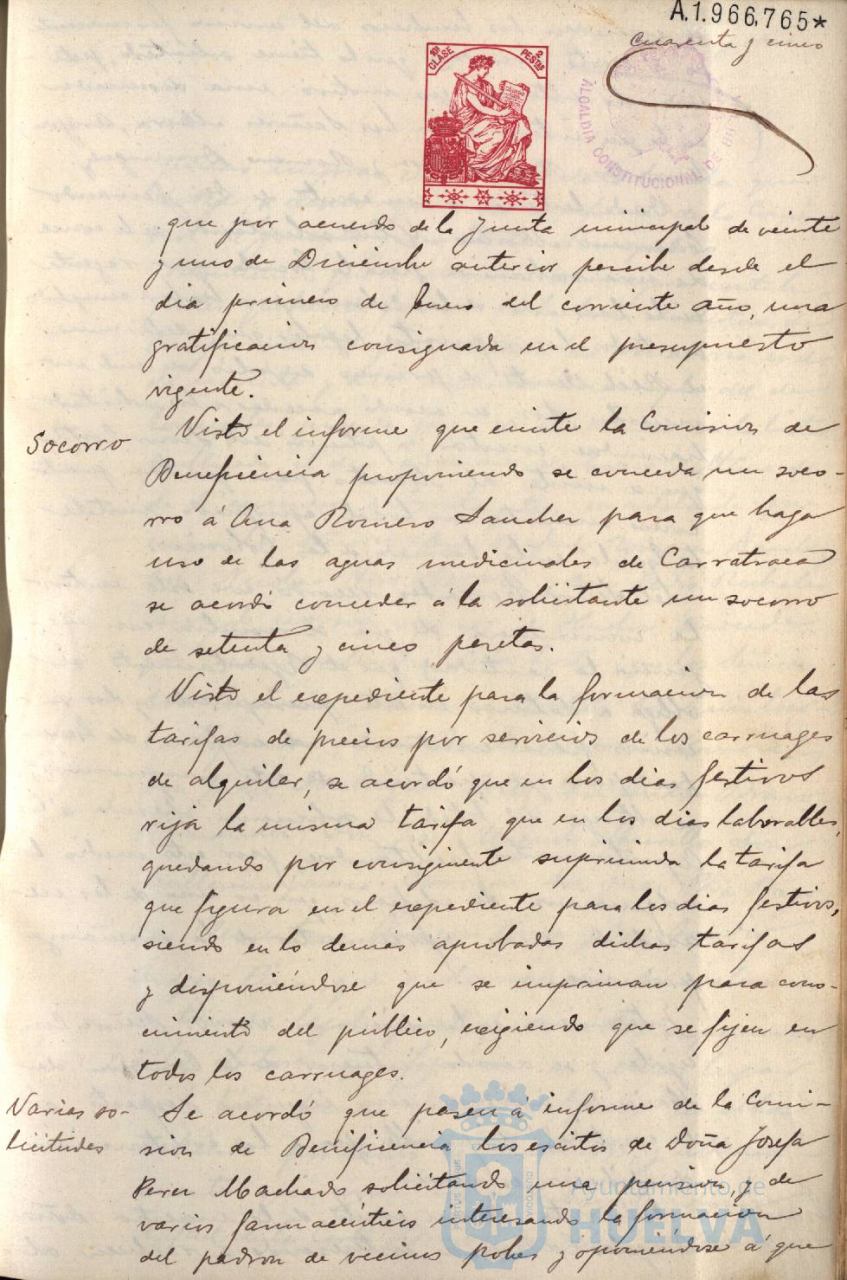 A.1.966,765*
Cuarenta y cinco
10ª CLASE
2 PESTAS
ALCALDIA CONSTITUCIONAL DE
que por acuerdo de la Junta municipal de veinte
y uno de Diciembre anterior percibe desde el
dia primero de Enero del corriente año, una
gratificacion consignada en el presupuesto
vigente.
Socorro
Visto el informe que emite la Comision de
Beneficiencia proponiendo se conceda un soco-
rro á Ana Romero Sanchez para que haga
uso de las aguas medicinales de Carratraca
se acordó conceder á la solicitante un socorro
de setenta y cinco pesetas.
Visto el expediente para la formacion de las
tarifas de precios por servicios de los carruages
de alquiler, se acordó que en los dias festivos
rija la misma tarifa que en los dias laborables,
quedando por consiguiente suprimida la tarifa
que figura en el expediente para los dias festivos,
siendo en lo demás aprobadas dichas tarifas
y disponiéndose que se impriman para cono-
cimiento del público, exigiendo que se fijen en
todos los carruages.
Varias so-
licitudes
Se acordó que pasen á informe de la Comi-
sion de Benificencia los escritos de Doña Josefa
Perez Machado solicitando una pension, y de
varios farmacéuticos interesando la formacion
del padron de vecinos pobres y oponiendose á que
Ayuntamiento de
HUELVA